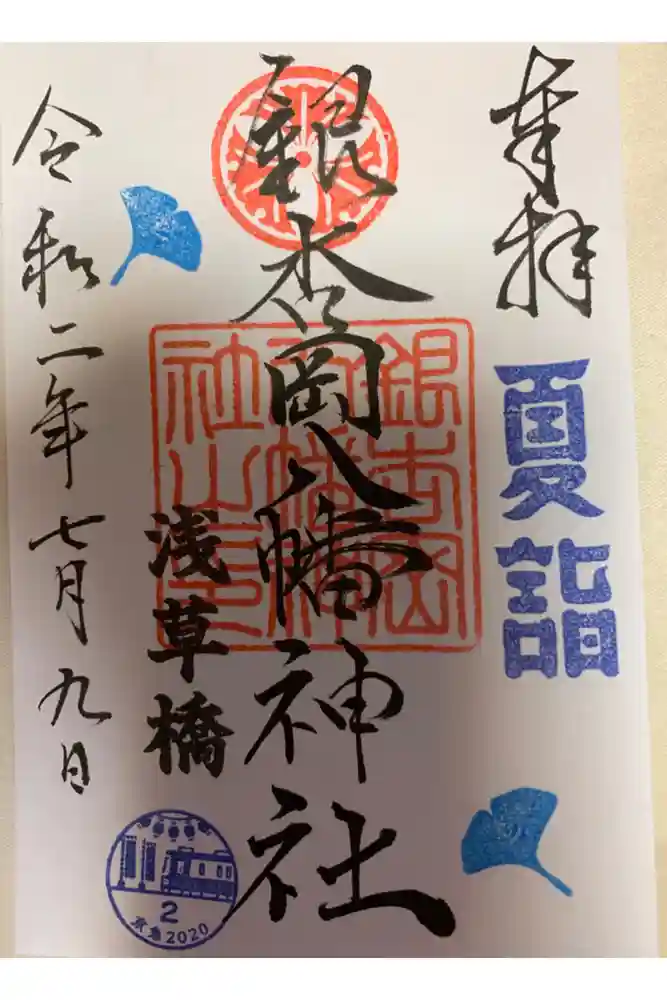 奉拝
夏詣
銀杏岡八幡神社
銀杏岡
八幡神
社
浅草橋
2
2020
令和二年七月九日